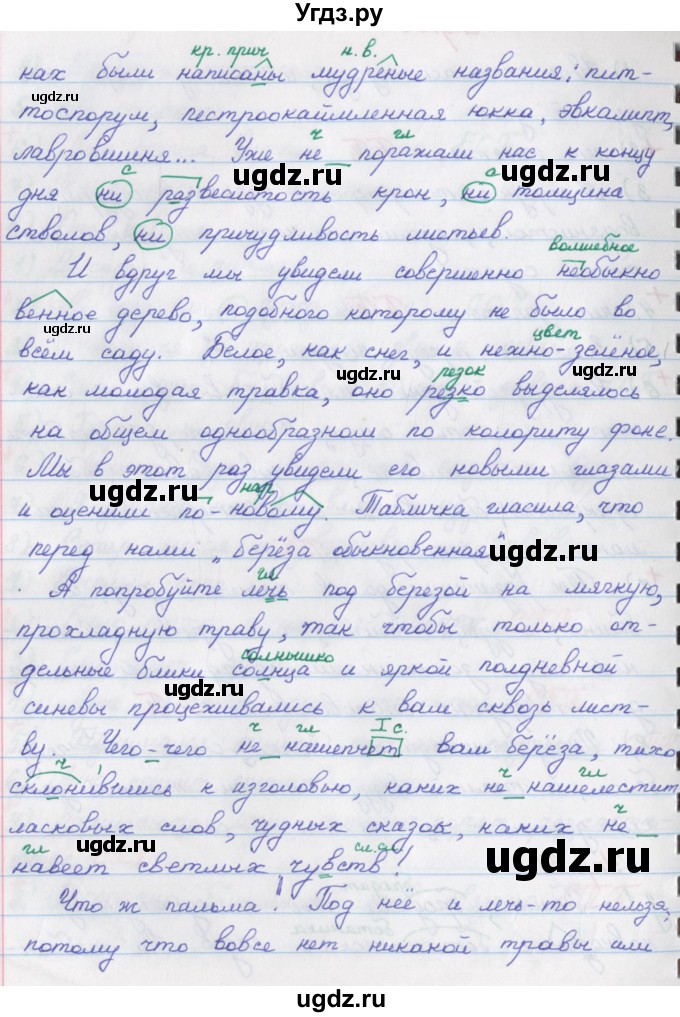 Угдз.ру
кр. прич н. в.
нах были написаны мудрёные названия: пит-
ugdz.ru
тоспорум, пестроокаймленная юкка, эвкалипт,
ч гл
лавровишня... Уже не поражали нас к концу
ugdz.ru ugdz.ru
с с
дня ни развесистость крон, ни толщина
стволов, ни причудливость листьев.
волшебное
И вдруг мы увидели совершенно необыкно
венное дерево, подобного которому не было во
ugdz.ru
цвет
всём саду. Белое, как снег, и нежно-зелёное,
ugdz.ru ugdz.ru
резок
как молодая травка, оно резко выделялось
на общем однообразном по колориту фоне.
Мы в этот раз увидели его новыми глазами
ugdz.ru
нар.
и оценили по-новому. Табличка гласила, что
перед нами „берёза обыкновенная"
ugdz.ru
гл
А попробуйте лечь под березой на мягкую,
прохладную траву, так чтобы только от-
солнышко
дельные блики солнца и яркой полдневной
ugdz.ru
синевы процеживались к вам сквозь лист-
ч гл I с.
ву. Чего-чего не нашепчет вам берёза, тихо
ч ч гл
склонившись к изголовью, каких не нашелестит
ugdz.ru
ласковых слов, чудных сказок, каких не
ч
гл сл. сл.
навеет светлых чувств!
ugdz.ru ugdz.ru
Что ж пальма! Под неё и лечь-то нельзя,
потому что вовсе нет никакой травы или
ugdz.ru